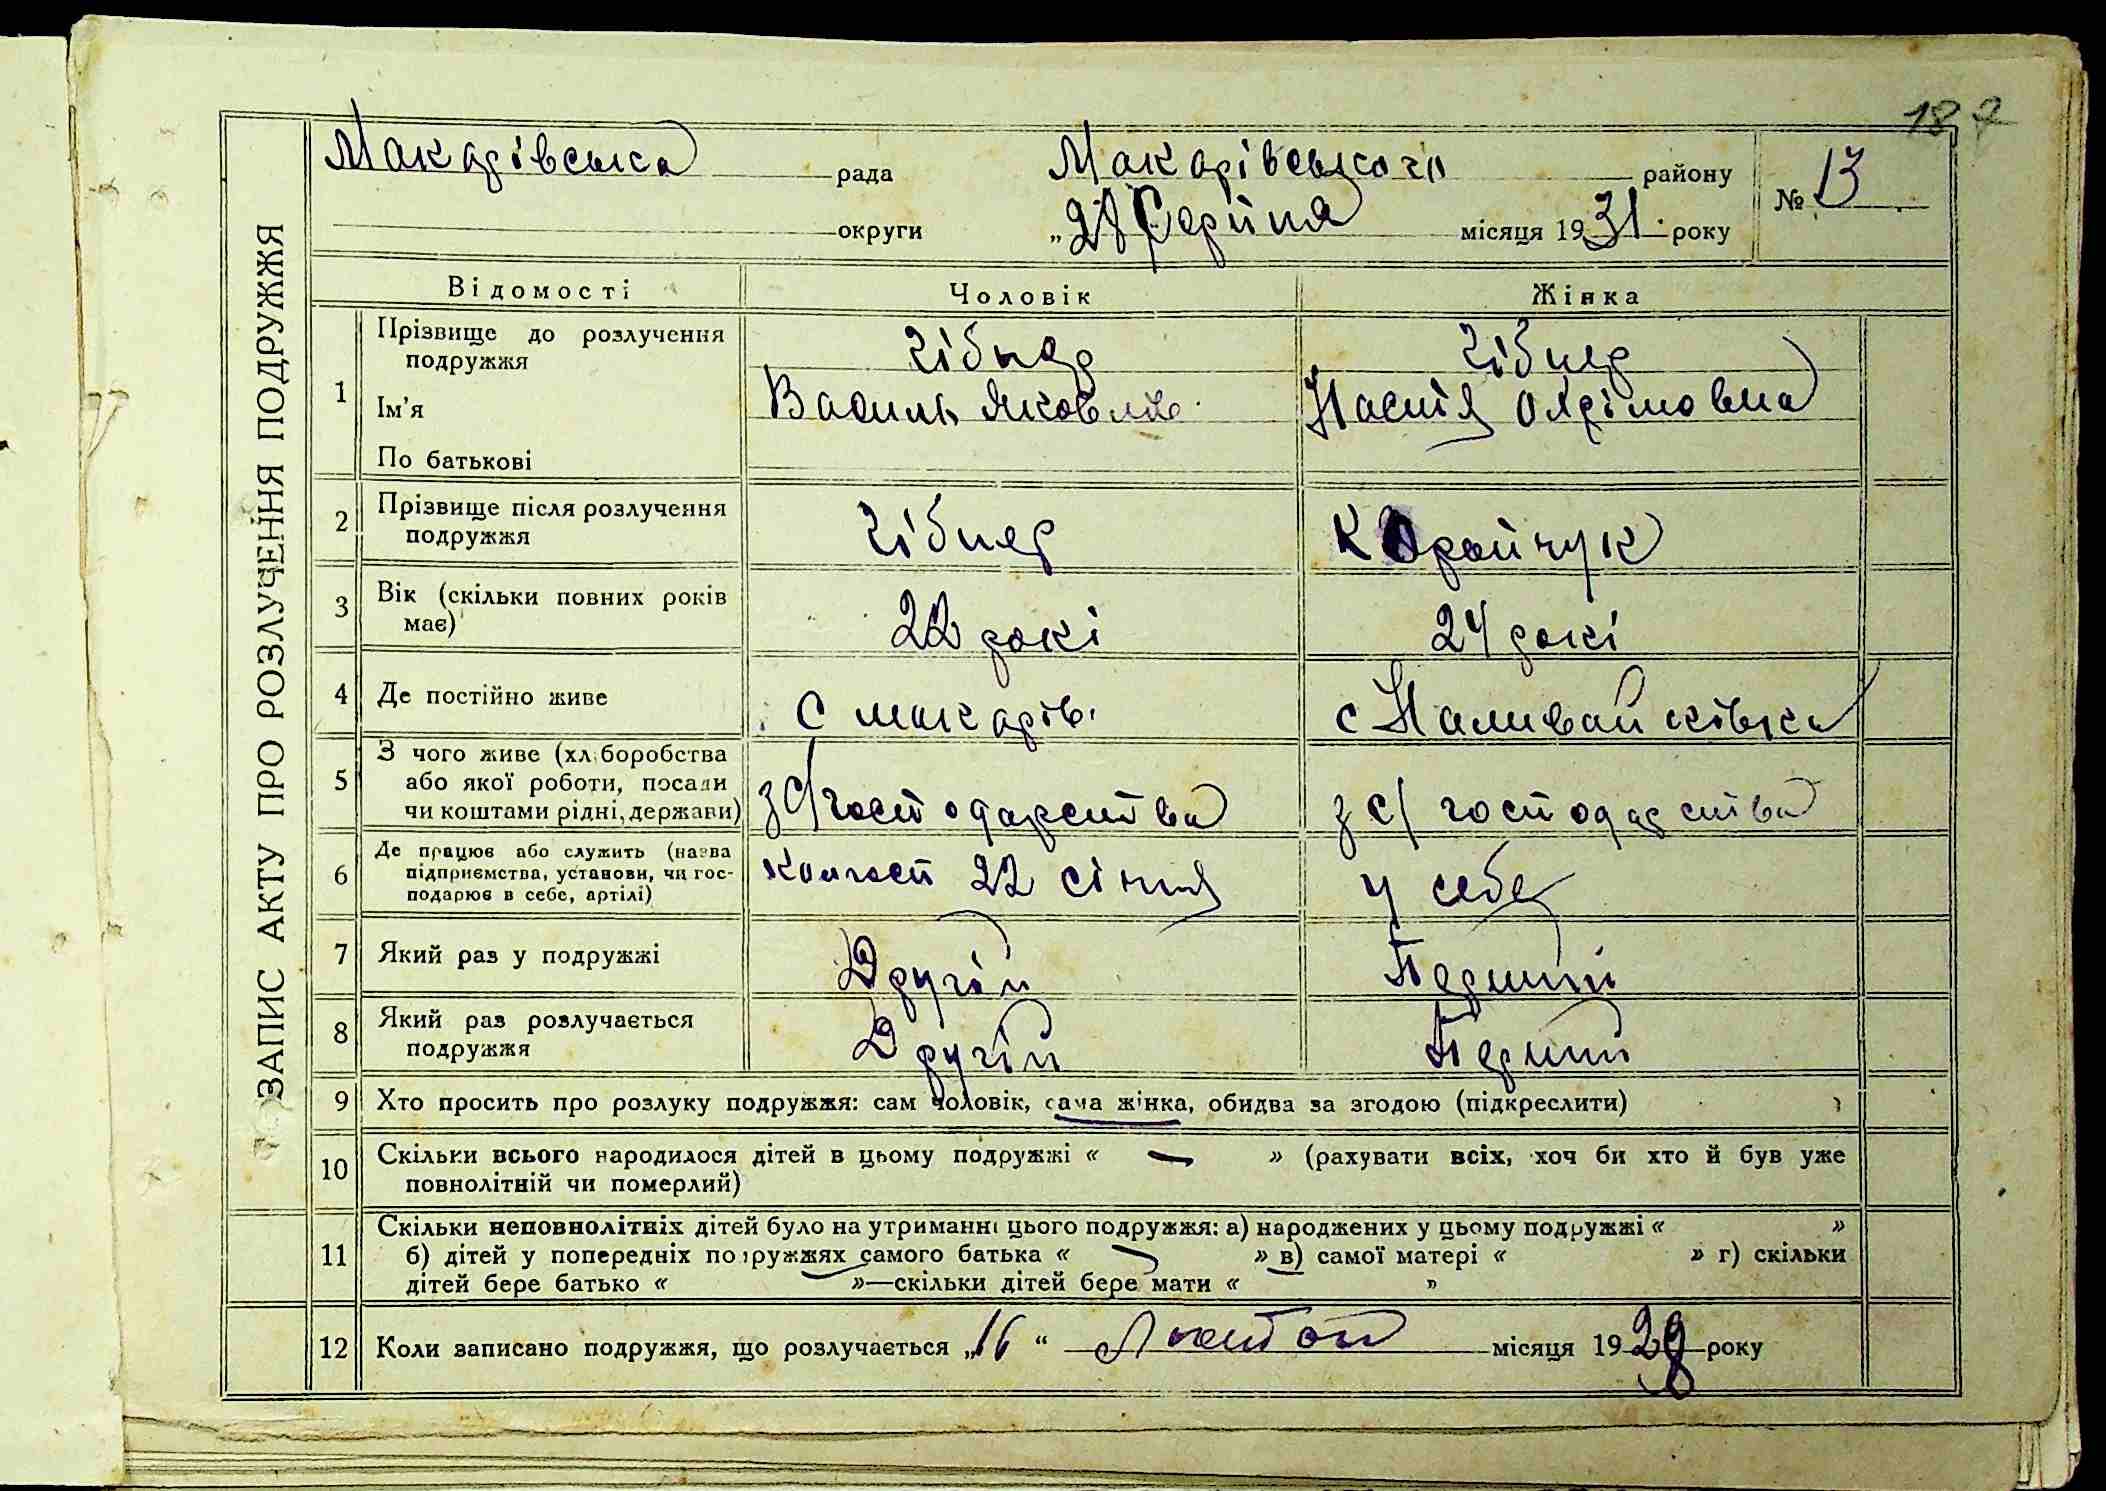 187
ЗАПИС АКТУ ПРО РОЗЛУЧЕННЯ ПОДРУЖЖЯ
Макарівська рада Макарівського району № 13
округи „28 Серпня місяця 1931 року
Відомості Чоловік Жінка
1 Прізвище до розлучення подружжя Чібнер Чібнер
Ім'я Василь Яковлів Настія Охрімовна
По батькові
2 Прізвище після розлучення подружжя Чібнер Корайчук
3 Вік (скільки повних років має) 22 рокі 24 рокі
4 Де постійно живе с Макарів с Наливайківка
5 З чого живе (хліборобства або якої роботи, посади чи коштами рідні, держави) з с/господарства з с/господарства
6 Де працює або служить (назва підприємства, установи, чи господарює в себе, артілі) Колгосп 22 січня у себе
7 Який раз у подружжі Другій Перший
8 Який раз розлучається подружжя Другій Перший
9 Хто просить про розлуку подружжя: сам чоловік, сама жінка, обидва за згодою (підкреслити)
10 Скільки всього народилося дітей в цьому подружжі « — » (рахувати всіх, хоч би хто й був уже
повнолітній чи померлий)
11 Скільки неповнолітніх дітей було на утриманні цього подружжя: а) народжених у цьому подружжі « »
б) дітей у попередніх подружжях самого батька « — » в) самої матері « » г) скільки
дітей бере батько « »—скільки дітей бере мати « »
12 Коли записано подружжя, що розлучається „16“ Лютого місяця 1929 року